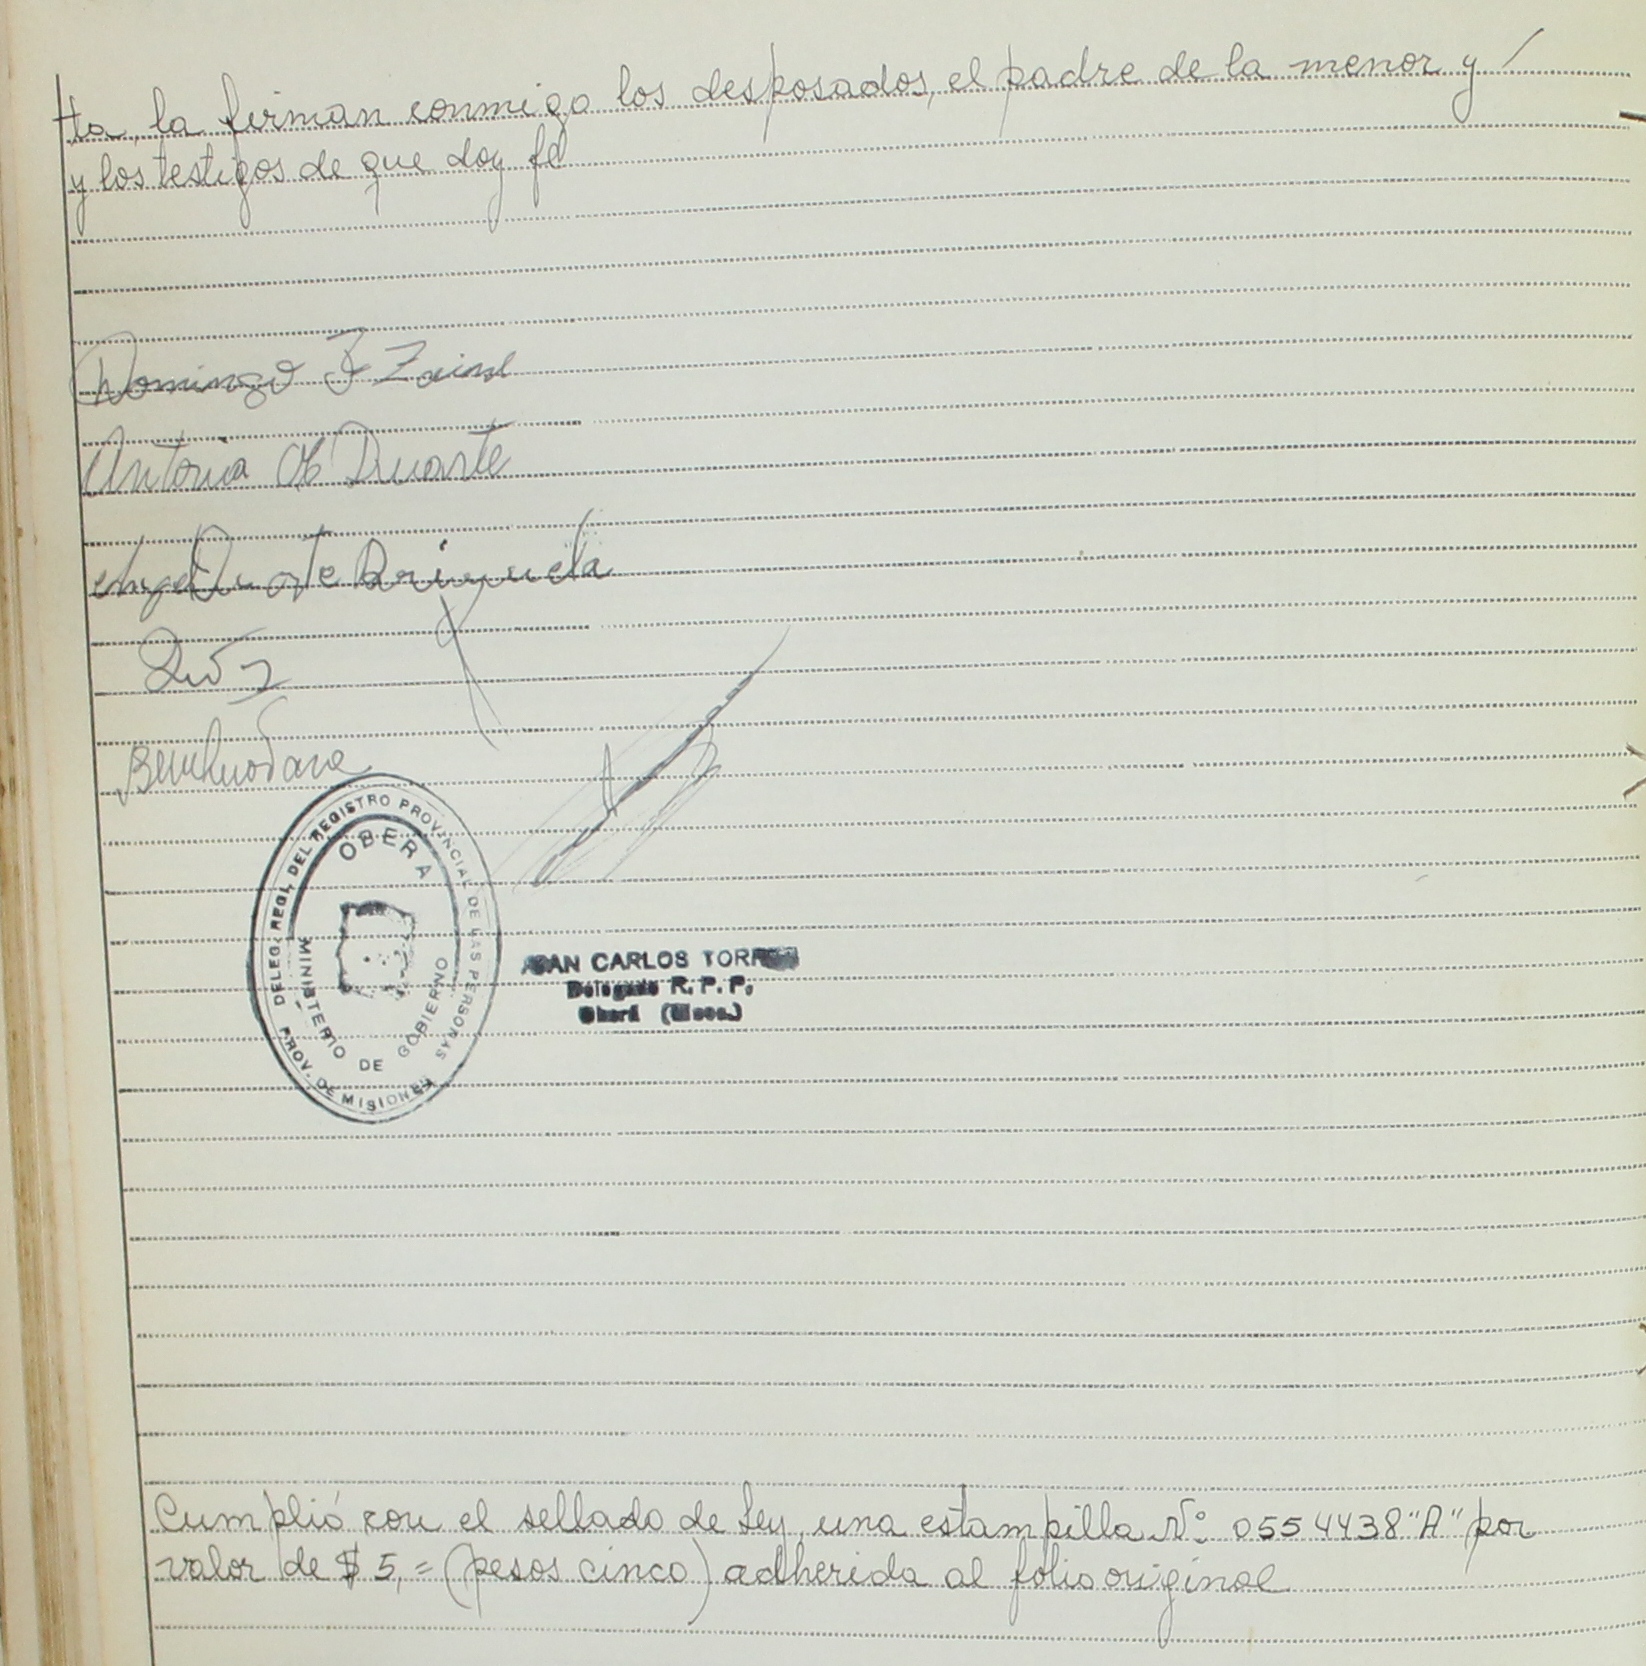 ta, la firman conmigo los desposados, el padre de la menor y
y los testigos de que doy fe
Domingo F Zaine
Antonia Duarte
Bernhardara
DELEG. REGL. DEL REGISTRO PROVINCIAL DE LAS PERSONAS
OBERA
MINISTERIO DE GOBIERNO
PROV. DE MISIONES
JUAN CARLOS TORRES
Delegado R. P. P.
Oberá (Mnes.)
Cumplió con el sellado de Ley, una estampilla Nº 0554438 "A" por
valor de $ 5,= (pesos cinco) adherida al folio original